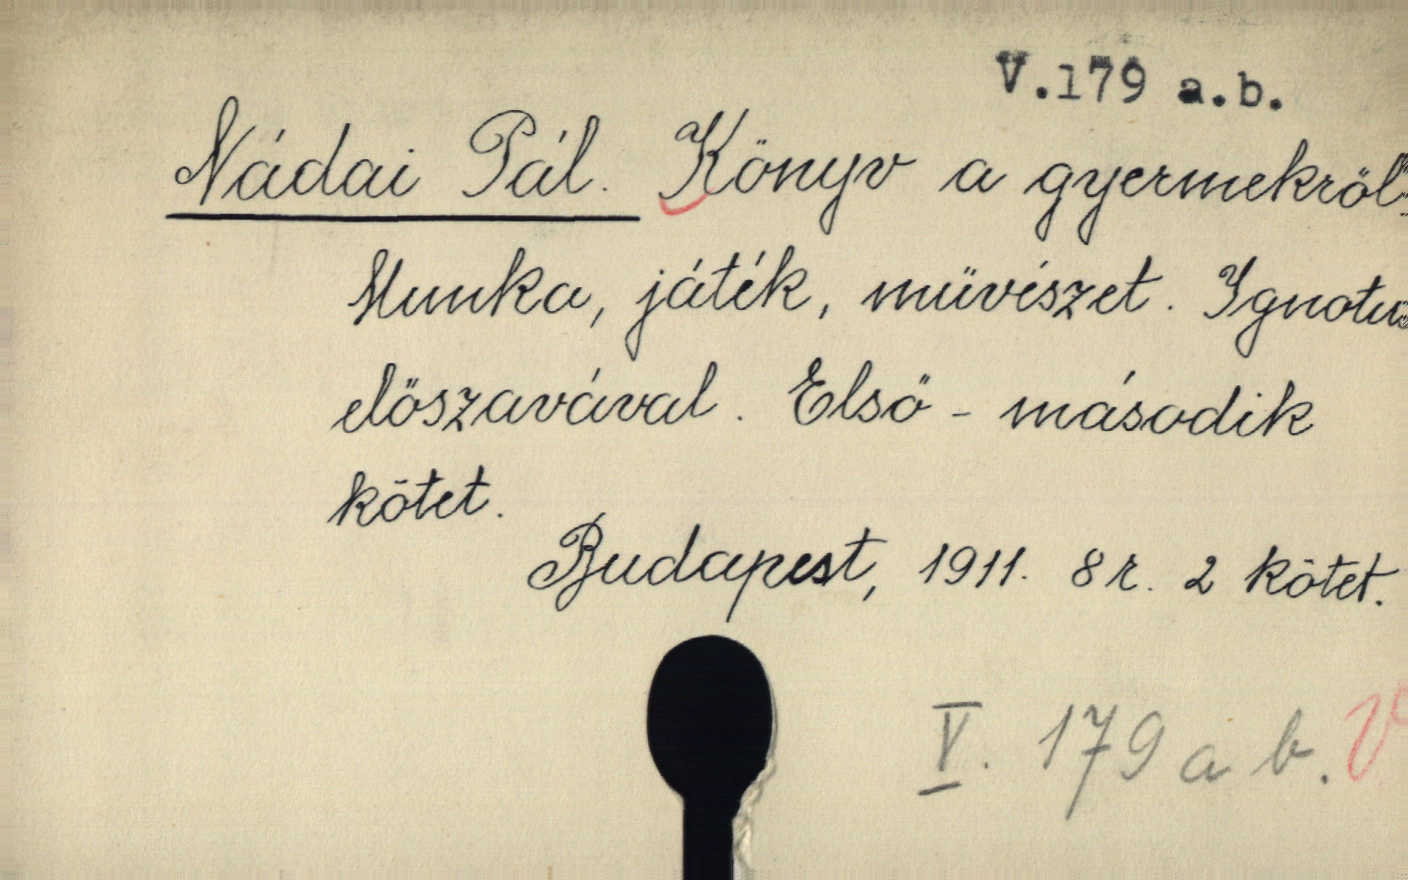 V.179 a.b.
Nádai Pál. Könyv a gyermekről.
Munka, játék, müvészet. Ignotus
előszavával. Első - második
kötet.
Budapest, 1911. 8 r. 2 kötet.
V. 179 a b.